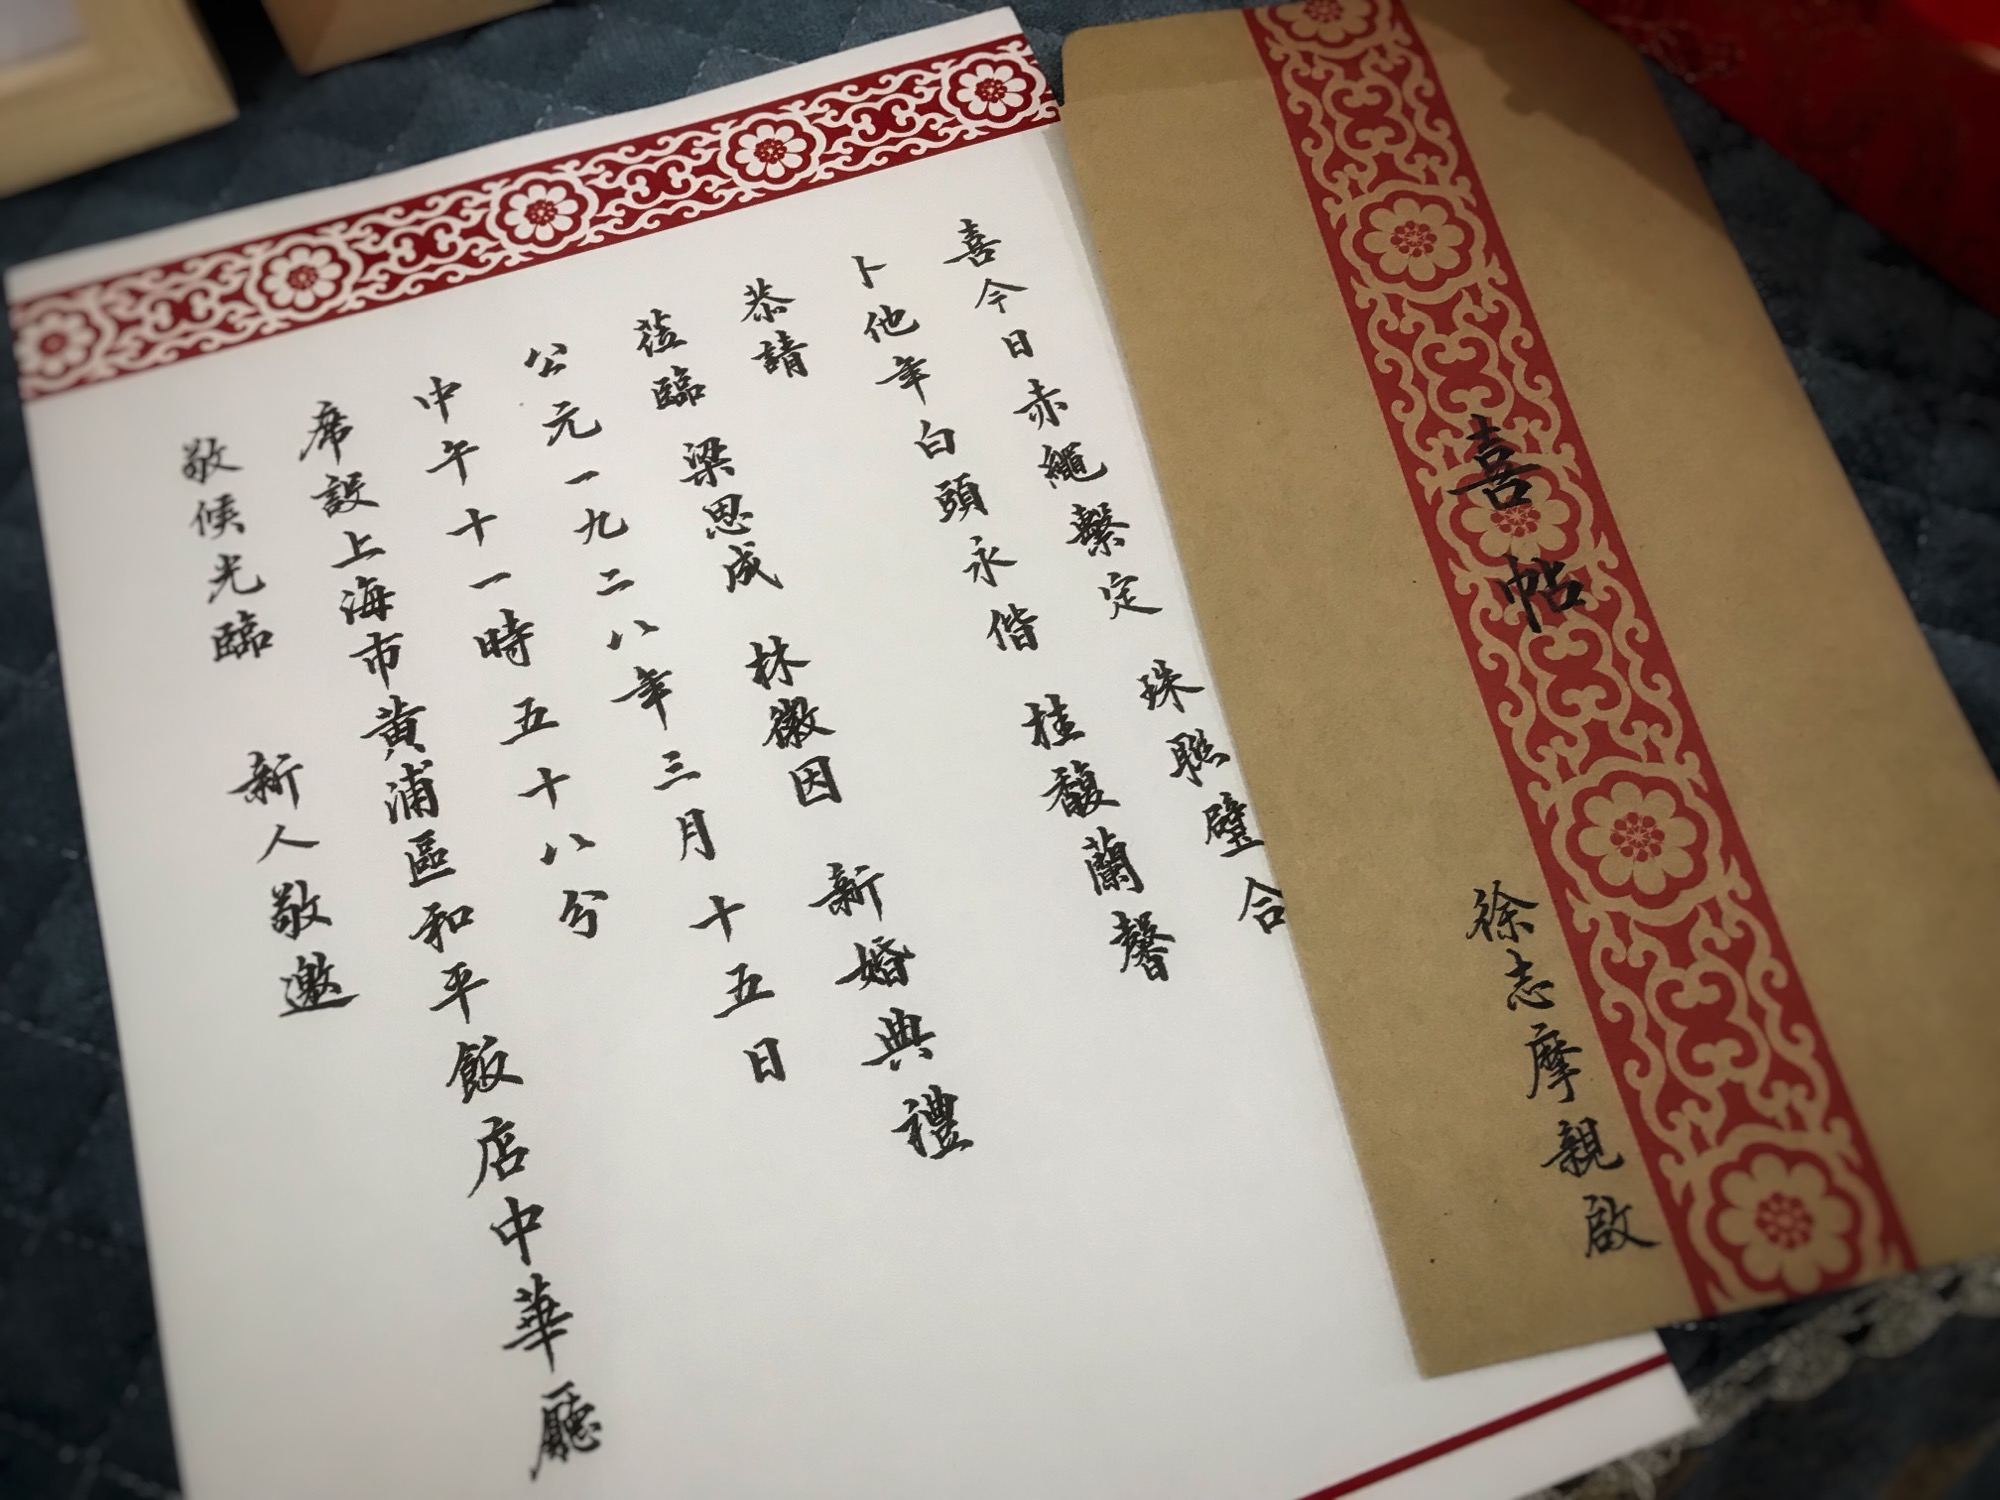 喜今日赤繩繫定 珠聯璧合
卜他年白頭永偕 桂馥蘭馨
恭請
蒞臨 梁思成 林徽因 新婚典禮
公元一九二八年三月十五日
中午十一時五十八分
席設上海市黄浦區和平飯店中華廳
敬候光臨 新人敬邀
喜帖
徐志摩親啟